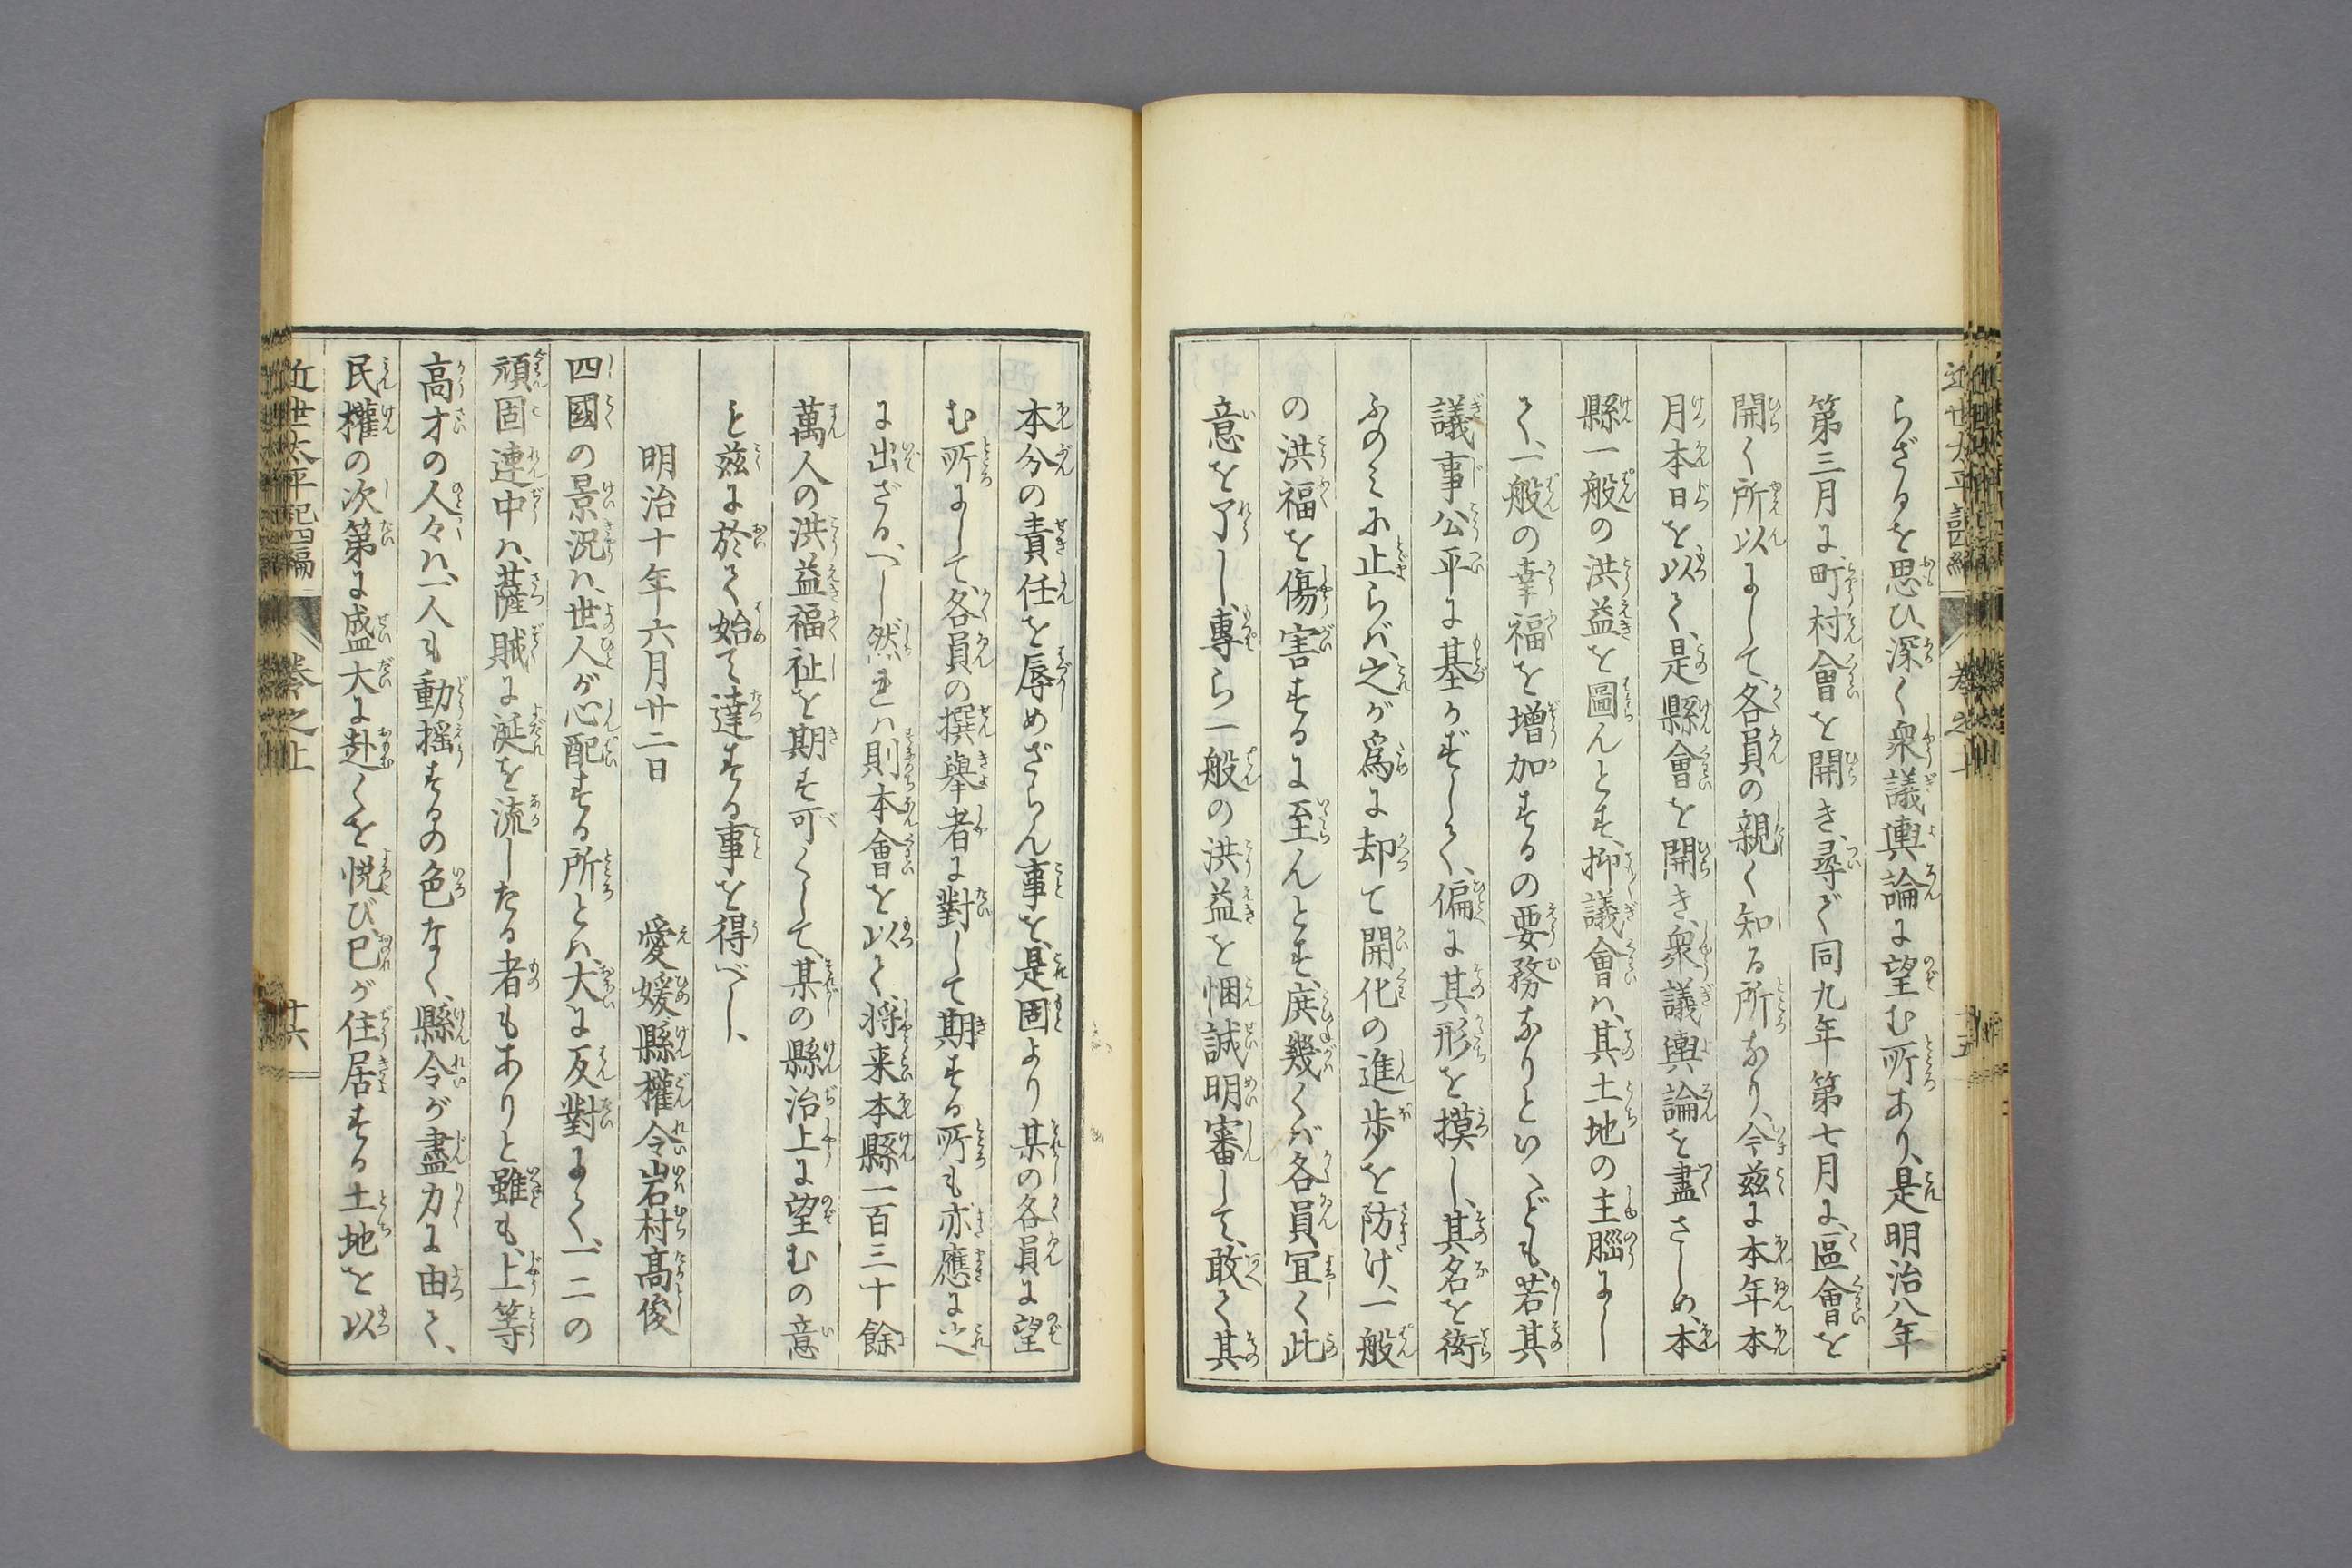 らざるを思ひ、深く衆議輿論に望む所あり、是明治八年
第三月に町村會を開き、尋で同九年第七月に、區會を
開く所以にして、各員の親しく知る所なり、今茲に本年本
月本日を以て、是縣會を開き、衆議輿論を盡さしめ、本
縣一般の洪益を圖んとす、抑議會ハ、其土地の主腦にし
て、一般の幸福を増加するの要務なりといへども、若其
議事公平に基かずして、偏に其形を摸し、其名を衒
ふのみに止らバ、之が爲に却て開化の進歩を防け、一般
の洪福を傷害するに至んとす、庻幾くバ各員宜く此
意を了し、專ら一般の洪益を悃誠明審して、敢て其
本分の責任を辱めざらん事を、是固より某の各員に望
む所にして、各員の撰擧者に對して期する所も亦應に之
に出ざるべし然ればハ則本會を以て、将来本縣一百三十餘
萬人の洪益福祉を期す可くして、某の縣治上に望むの意
を茲に於て始て達する事を得べし、
明治十年六月廿二日　愛媛縣權令岩村髙俊
四國の景況ハ、世人が心配する所とハ、大に反對にて、一二の
頑固連中ハ、薩賊に涎を流したる者もありと雖も、上等
高才の人々ハ、一人も動揺するの色なく、縣令が盡力に由て、
民權の次第に盛大に赴くを悦び、已が住居する土地を以
近世太平記四編　巻之上　十六